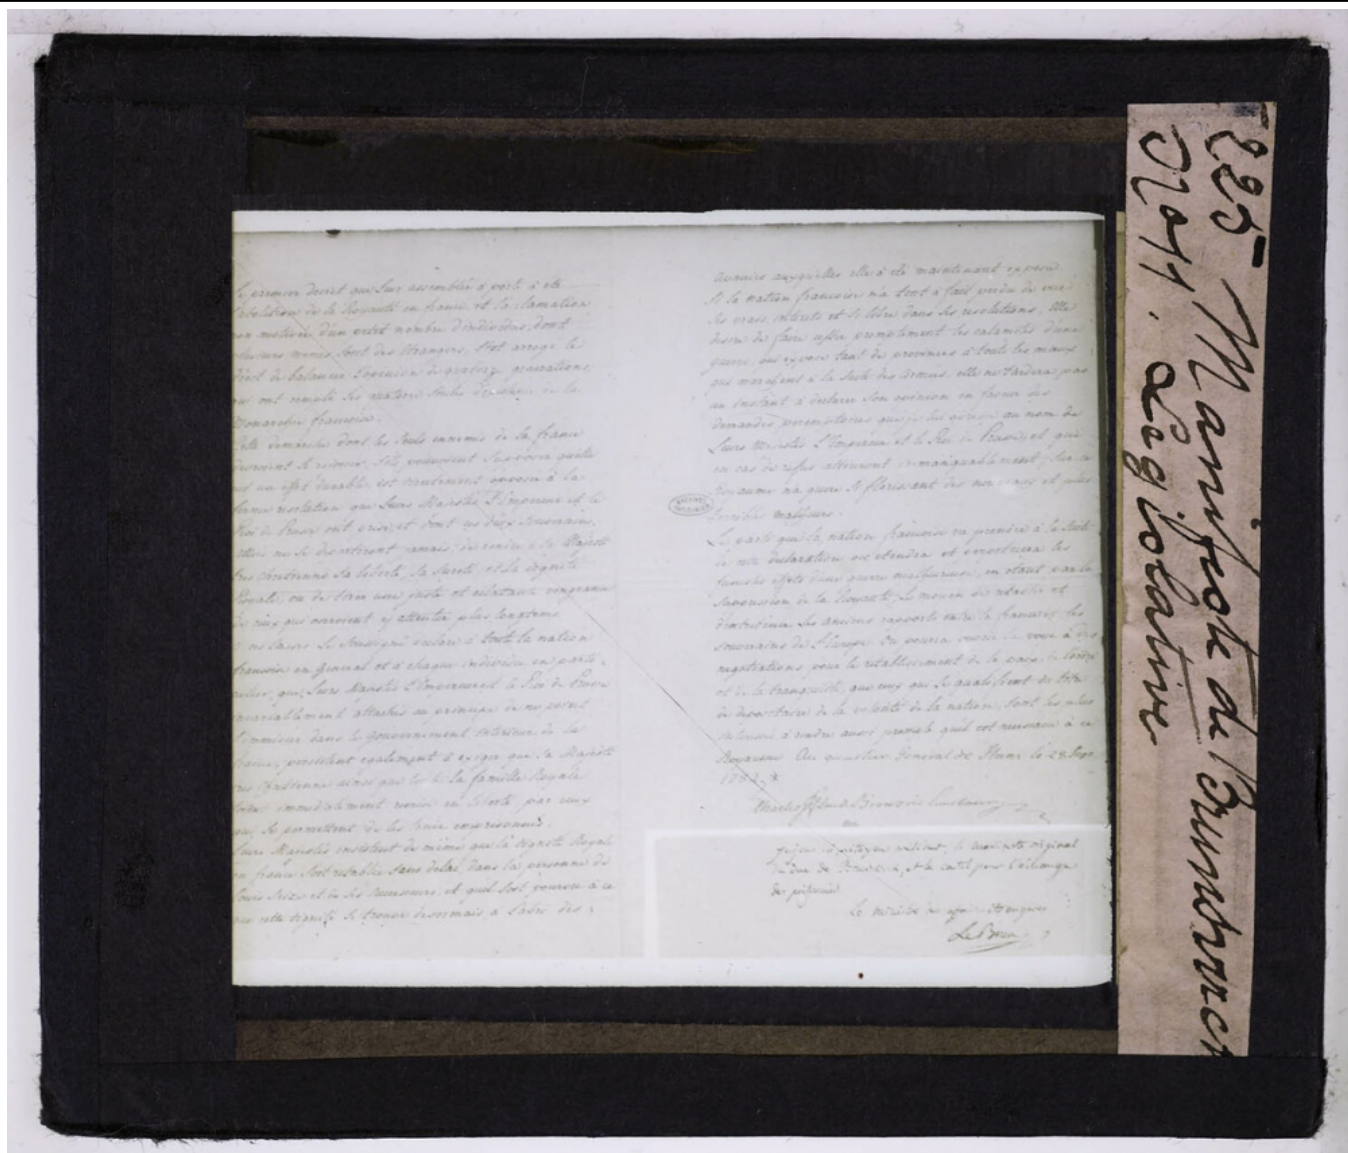 premier decret que leur assemblée a porté a été
l'abolition de la Royauté en france, et la clamation
non motivée d'un petit nombre d'individus, dont
plusieurs memes sont des étrangers, s'est arrogé le
droit de balancer l'opinion de quatorze generations,
qui ont rempli les quatorze siecles de la
Monarchie françoise.
Cette demarche dont les seuls ennemis de la france
devroient se rejouir, s'ils pouvoient supposer qu'elle
eut un effet durable, est directement opposée à la
ferme resolution que Leurs Majestés L'Empereur et le
Roi de Prusse ont prise, et dont ces deux Souverains
alliés ne se departiront jamais, de rendre à Sa Majesté
très chretienne Sa liberté, Sa Sureté, et Sa dignité
Royale, ou de tirer une juste et éclatante vengeance
de ceux qui oseroient y attenter plus longtems
Le Soussigné declare à toute la nation
françoise en General et à chaque individu en parti-
culier, que Leurs Majestés L'Empereur et le Roi de Prusse
invariablement attachés au principe de ne point
s'immiscer dans le gouvernement interieur de la
france, persistent egalement à exiger que Sa Majesté
très Chretienne ainsi que toute la famille Royale
soient immediatement remis en liberté, par ceux
qui se permettent de les tenir emprisonnés.
Leurs Majestés insistent de même que la dignité Royale
en france soit retablie sans delai, dans la personne de
Louis Seize et de ses Successeurs, et qu'il soit pourvu à ce
que cette dignité se trouve desormais à l'abri des
avanies auxquelles elle a été maintenant exposée.
Si la nation françoise n'a tout à fait perdu de vue
Ses vrais interets et si libre dans ses resolutions, Elle
desire de faire cesser promptement les calamités d'une
guerre, qui expose tant de provinces à toute les maux
qui marchent à la Suite des Armées, elle ne tardera pas
un instant à declarer Son opinion en faveur des
demandes peremptoires que je lui adresse au nom de
Leurs Majestés L'Empereur et le Roi de Prusse, et qui
en cas de refus attireront immanquablement sur ce
Royaume n'a guere si florissant des nouveaux et plus
terribles malheurs.
Le parti que la nation françoise va prendre à la Suite
de cette declaration ou etendra et perpetuera les
funestes effets d'une guerre malheureuse, en otant par la
Supression de la Royauté, Le moyen de retablir et
d'entretenir les anciens rapports entre la france et les
Souverains de L'Europe. Ou pourra ouvrir la voie à des
negotiations pour le retablissement de la paix, de l'ordre
et de la tranquilité, que ceux qui se qualifient du titre
de depositaire de la volonté de la nation, sont les plus
interessés à rendre aussi prompte qu'il est necessaire à ce
Royaume. Au quartier General de Hans le 28 Sept
1792.
Charles
citoyen président, le manifeste original
du duc de Brunswick, et le cartel pour l'échange
des prisonniers
Le ministre des affaires étrangeres
LeBrun
225 Manifeste de Brunswick
Législative